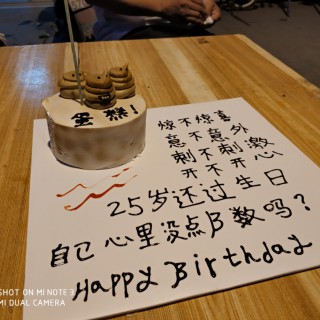 蛋糕!
惊不惊喜
意不意外
刺不刺激
开不开心
25岁还过生日
自己心里没点B数吗?
Happy Birthday
SHOT ON MI NOTE 3
MI DUAL CAMERA